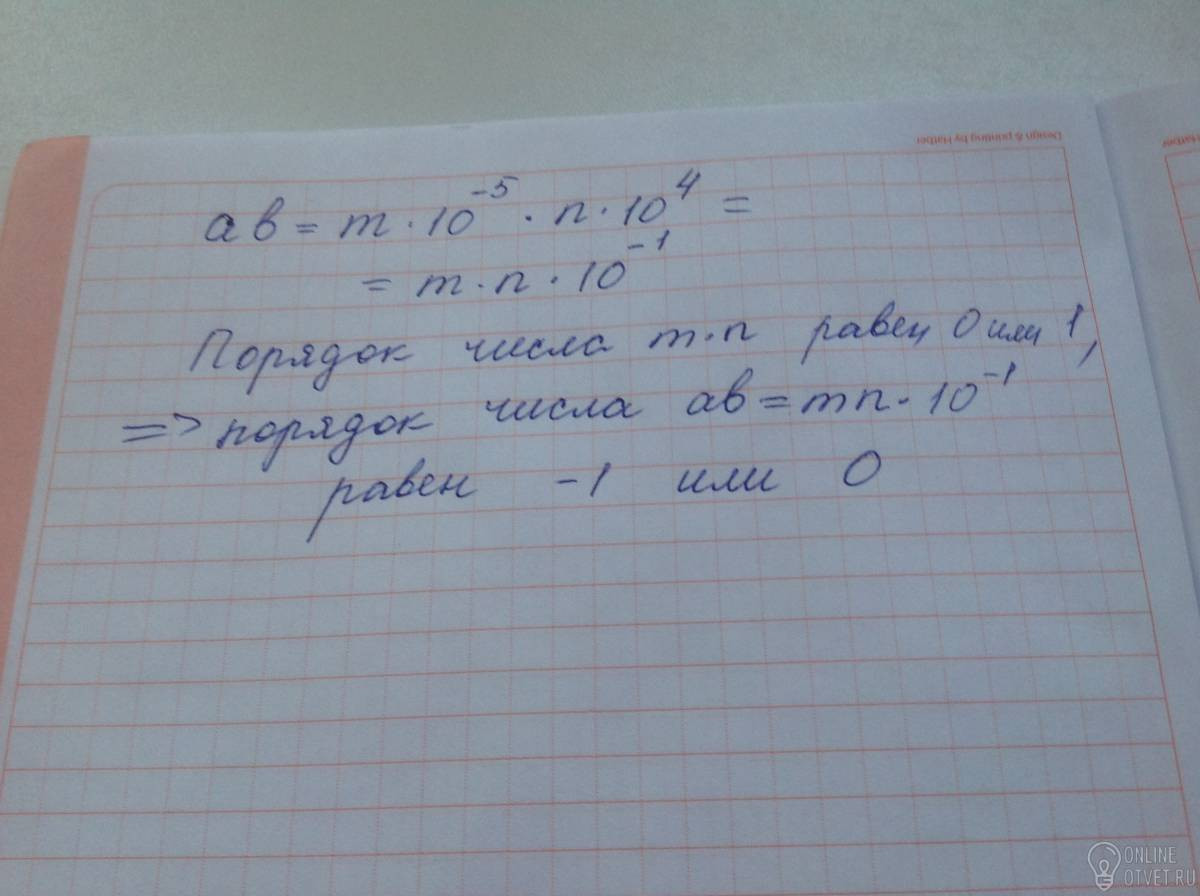 Design & printing by Hatber
ab = m · 10⁻⁵ · n · 10⁴ =
= m · n · 10⁻¹
Порядок числа m·n равен 0 или 1,
=> порядок числа ab = mn · 10⁻¹
равен -1 или 0
ONLINE
OTVET.RU